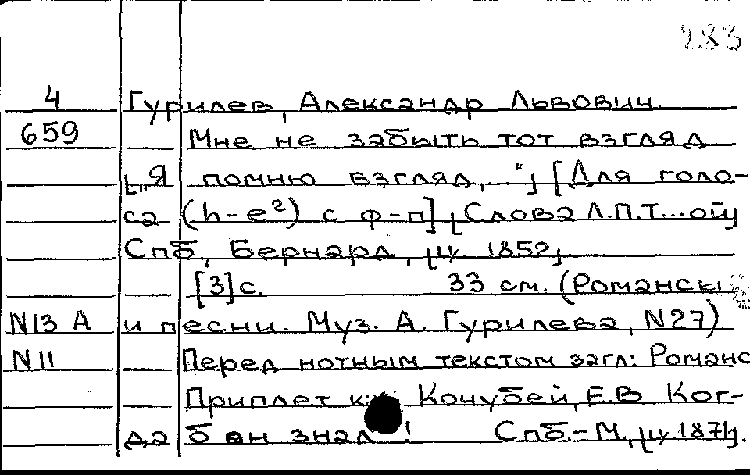 283
4 Гурилев, Александр Львович.
659 Мне не забыть тот взгляд
[„Я помню взгляд,..."] [Для голо-
са (h-e²) с ф-п] [Слова Л.П.Т...ой]
Спб, Бернард, [ц. 1852]
[3]с. 33 см. (Романсы
N13 А и песни. Муз. А. Гурилева, N27)
N11 Перед нотным текстом загл: Романс
Приплет к: Кочубей, Е.В. Ког-
да б он знал! Спб.-М., [ц. 187